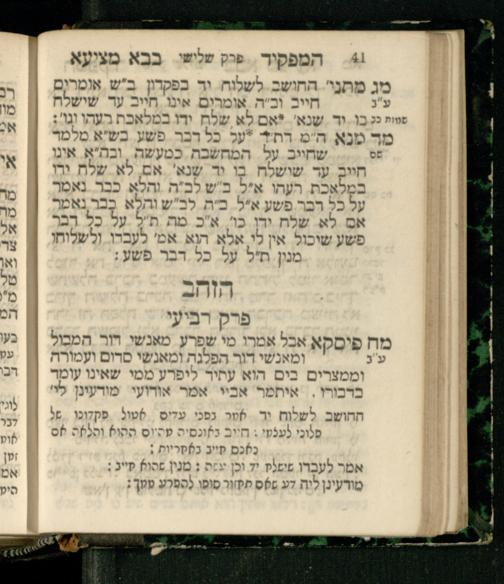 41 המפקיד פרק שלישי בבא מציעא
מג מתני׳ החושב לשלוח יד בפקדון ב״ש אומרים
ע״ב חייב וב״ה אומרים אינו חייב עד שישלח
שמות כב בו יד שנא׳ *אם לא שלח ידו במלאכת רעהו וגו׳:
מד מנא ה״מ דת״ר *על כל דבר פשע בש״א מלמד
שם שחייב על המחשבה כמעשה ובה״א אינו
חייב עד שישלח בו יד שנא׳ אם לא שלח ידו
במלאכת רעהו א״ל ב״ש לב״ה והלא כבר נאמר
על כל דבר פשע א״ל ב״ה לב״ש והלא כבר נאמר
אם לא שלח ידו כו׳ א״כ מה ת״ל על כל דבר
פשע שיכול אין לי אלא הוא אמ׳ לעבדו ולשלוחו
מנין ת״ל על כל דבר פשע:
הזהב
פרק רביעי
מח פיסקא אבל אמרו מי שפרע מאנשי דור המבול
ע״ב ומאנשי דור הפלגה ומאנשי סדום ועמורה
וממצרים בים הוא עתיד ליפרע ממי שאינו עומד
בדבורו. איתמר אביי אמר אודועי מודעינן לי׳
החושב לשלוח יד אמר בפני עדים אטול פקדונו של
פלוני לעצמי: חייב באונסיה מהיום ההוא והלאה אם
נאנס חייב באחריות:
אמר לעבדו שישלח יד וכן עשה: מנין שהוא חייב:
מודעינן ליה דע שאם תחזור סופו להפרע ממך: